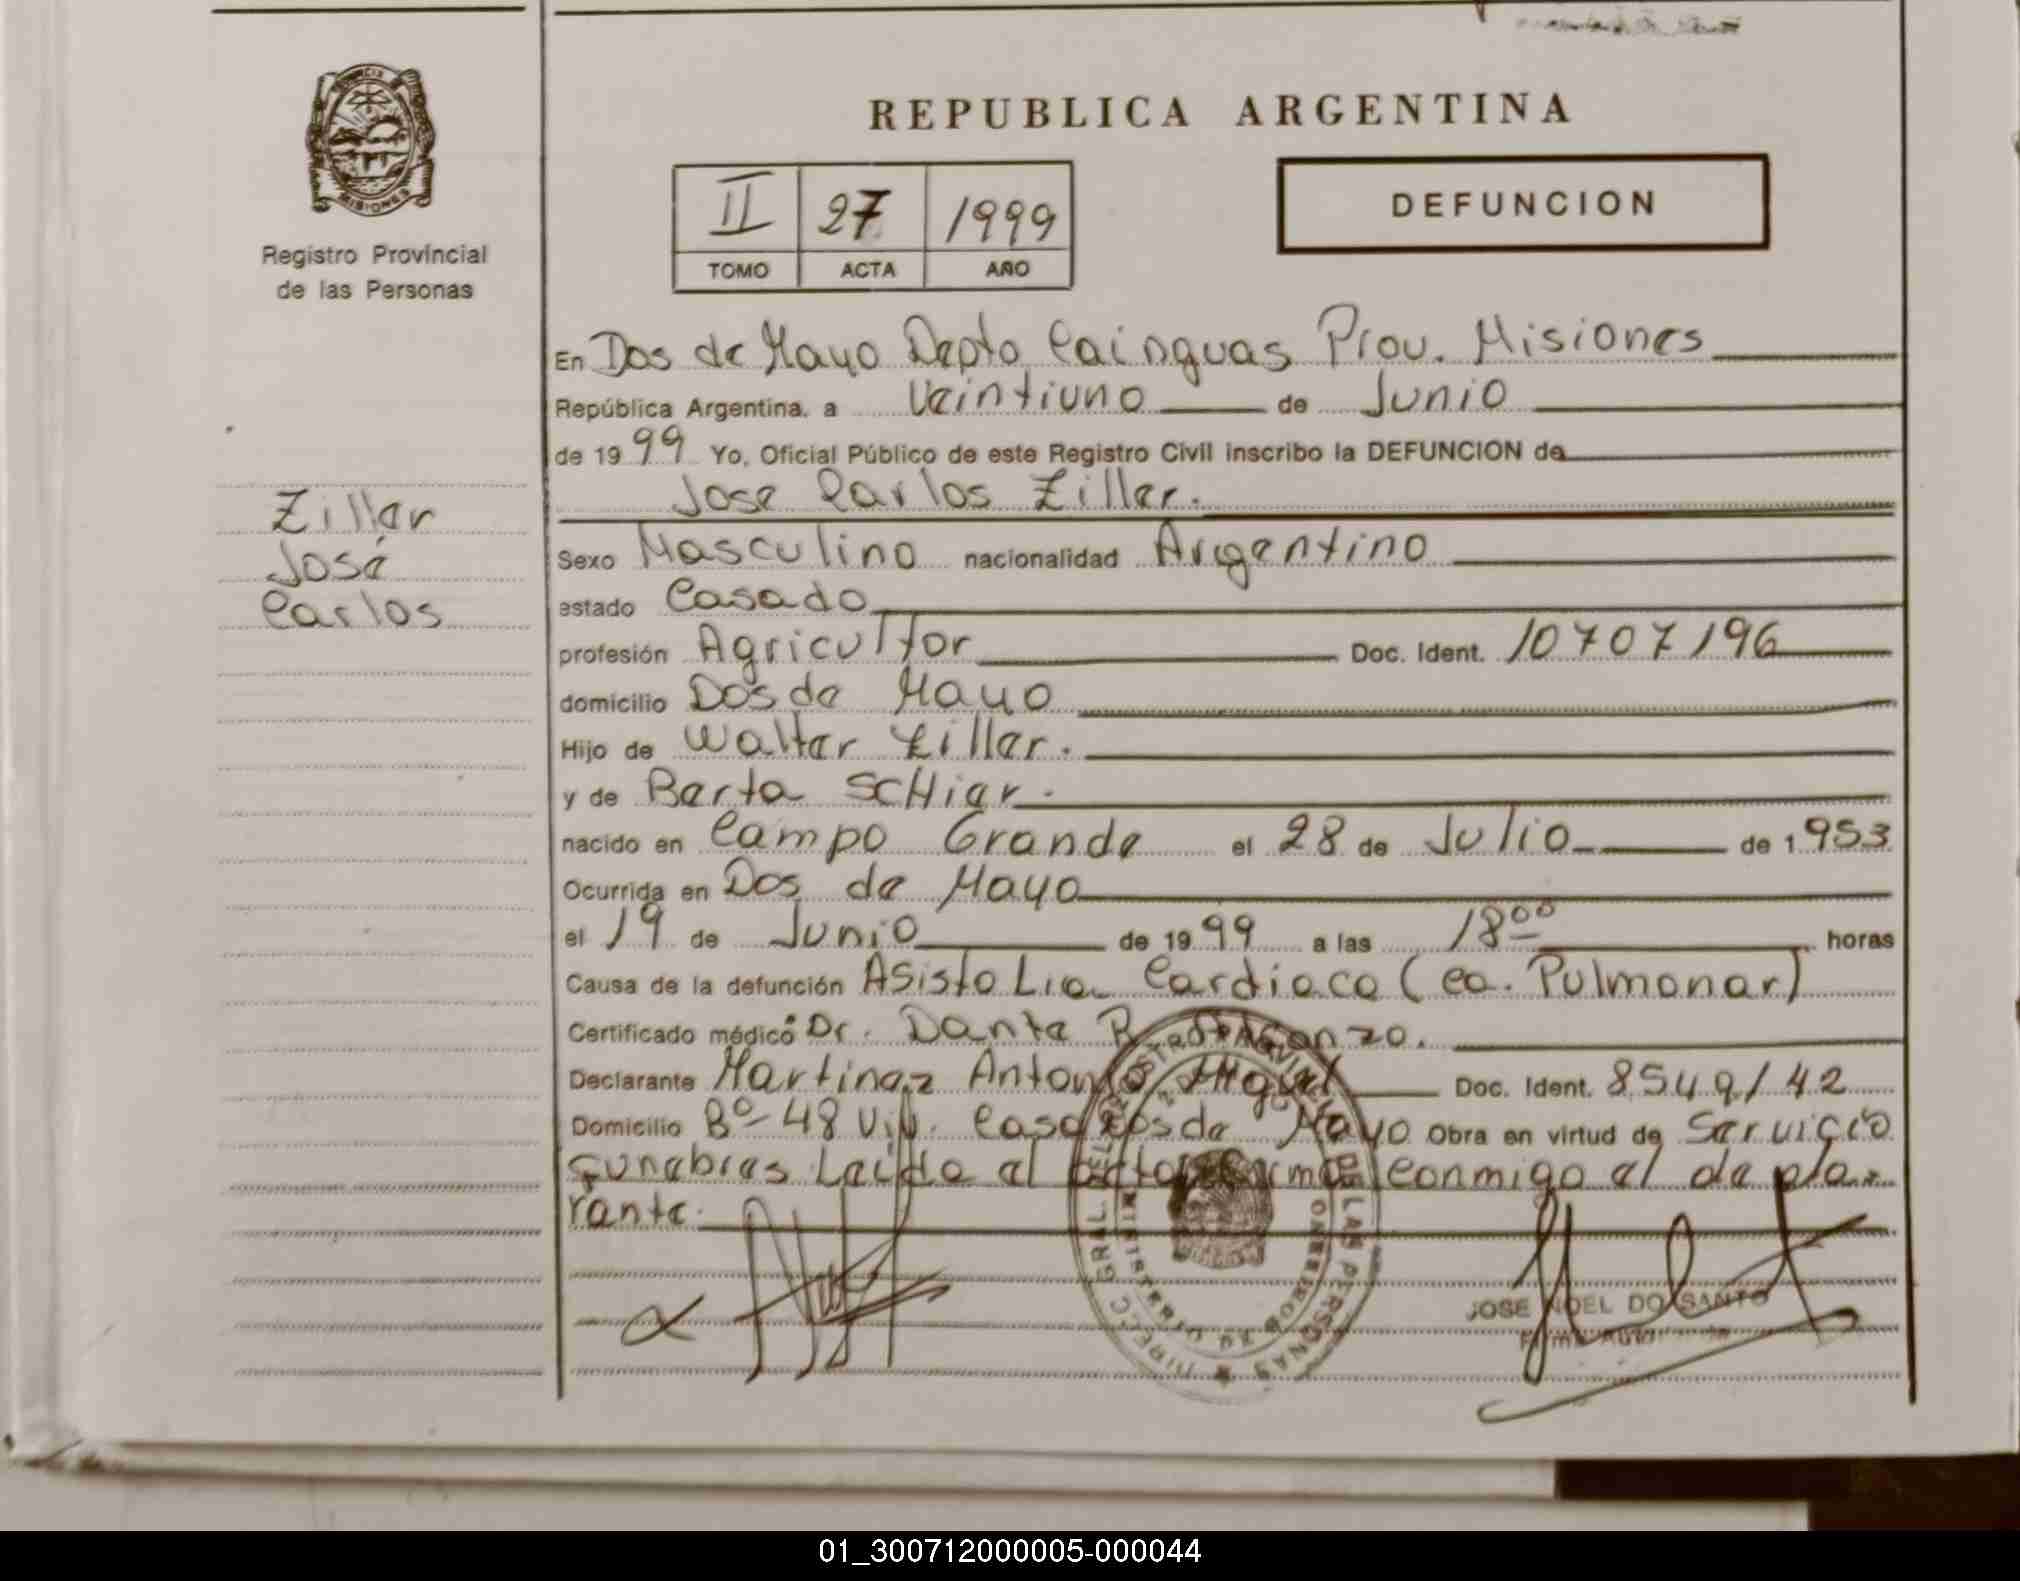 REPUBLICA ARGENTINA
PROVINCIA
MISIONES
Registro Provincial
de las Personas
II 27 1999
TOMO ACTA AÑO
DEFUNCION
En Dos de Mayo Depto Cainguas Prov. Misiones
República Argentina, a Veintiuno de Junio
de 1999 Yo, Oficial Público de este Registro Civil inscribo la DEFUNCION de
Jose Carlos Ziller.
Ziller
José
Carlos
Sexo Masculino nacionalidad Argentino
estado Casado
profesión Agricultor Doc. Ident. 10707196
domicilio Dos de Mayo
Hijo de Walter Ziller.
y de Berta SCHier.
nacido en Campo Grande el 28 de Julio de 1953
Ocurrida en Dos de Mayo
el 19 de Junio de 1999 a las 18 00 horas
Causa de la defunción Asistolia Cardiaca (ca. Pulmonar)
Certificado médico Dr. Dante R.
Declarante Martinez Antonio Miguel Doc. Ident. 8549142
Domicilio Bº 48 Viv. Casa Dos de Mayo Obra en virtud de Servicio
funebres Leida al acta firma conmigo el de cla-
rante.
JOSE NOEL DO SANTO
01_300712000005-000044